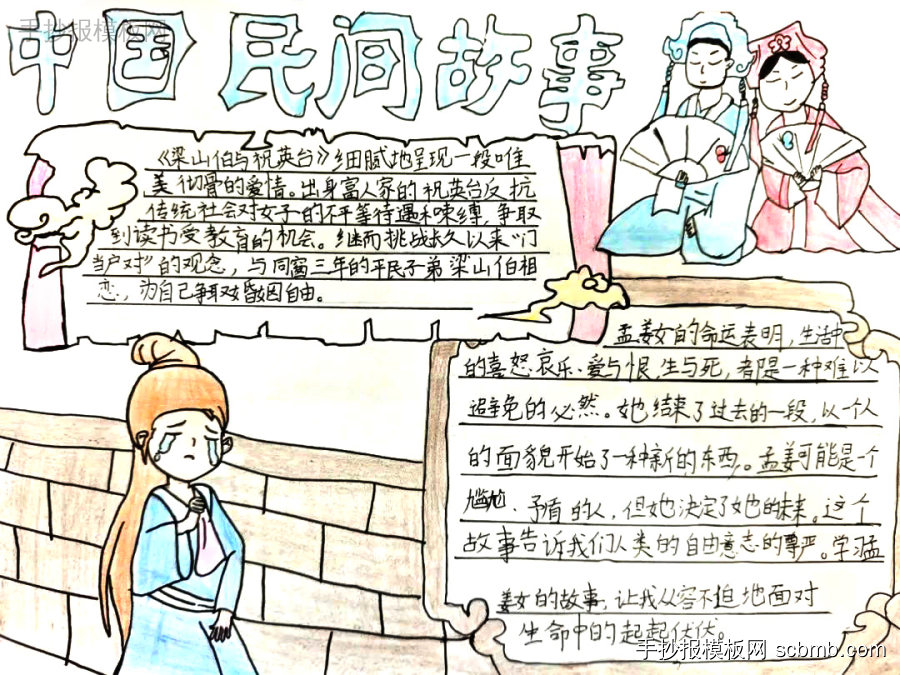 手抄报模板网
中国民间故事
《梁山伯与祝英台》细腻地呈现一段唯
美彻骨的爱情。出身富人家的祝英台反抗
传统社会对女子的不平等待遇和束缚,争取
到读书受教育的机会。继而挑战永久以来“门
当户对”的观念,与同窗三年的平民子弟梁山伯相
恋,为自己争取对婚姻自由。
孟姜女的命运表明,生活中
的喜怒哀乐、爱与恨,生与死,都是一种难以
避免的必然。她结束了过去的一段,以一个人
的面貌开始了一种新的东西。孟姜可能是个
尴尬、矛盾的人,但她决定了她的未来。这个
故事告诉我们人类的自由意志的尊严。学习孟
姜女的故事,让我从容不迫地面对
生命中的起起伏伏。
手抄报模板网 scbmb.com